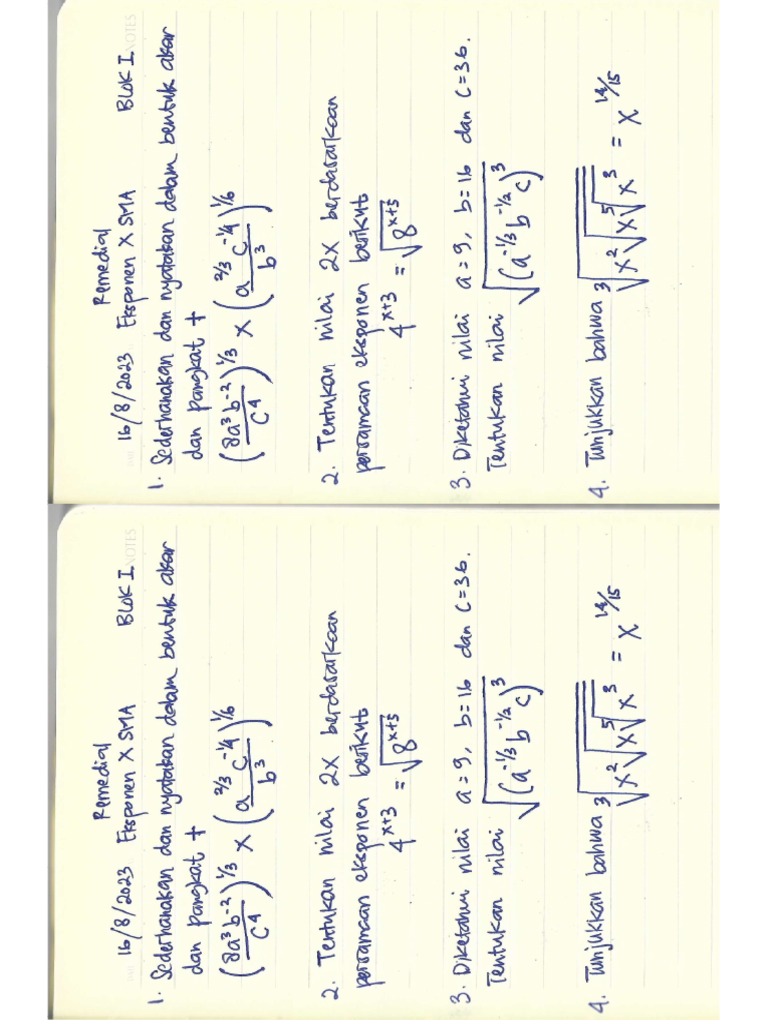 NOTES
Remedial
16/8/2023 Eksponen X SMA BLOK I
1. Sederhanakan dan nyatakan dalam bentuk akar
dan pangkat +
(8a³b⁻²/c⁴)^1/3 × (a^2/3 c^-1/4/b³)^1/6
2. Tentukan nilai 2x berdasarkaan
persamaan eksponen berikut
4^x+3 = √8^x+5
3. Diketahui nilai a=9, b=16 dan c=36.
Tentukan nilai √(a^-1/3 b^-1/2 c)³
4. Tunjukkan bahwa ³√x²√x⁵√x³ = x^14/15
NOTES
Remedial
16/8/2023 Eksponen X SMA BLOK I
1. Sederhanakan dan nyatakan dalam bentuk akar
dan pangkat +
(8a³b⁻²/c⁴)^1/3 × (a^2/3 c^-1/4/b³)^1/6
2. Tentukan nilai 2x berdasarkaan
persamaan eksponen berikut
4^x+3 = √8^x+5
3. Diketahui nilai a=9, b=16 dan c=36.
Tentukan nilai √(a^-1/3 b^-1/2 c)³
4. Tunjukkan bahwa ³√x²√x⁵√x³ = x^14/15